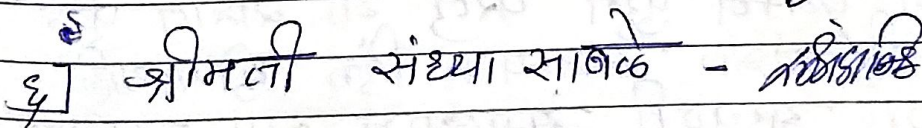 ६] श्रीमती संध्या साबळे -